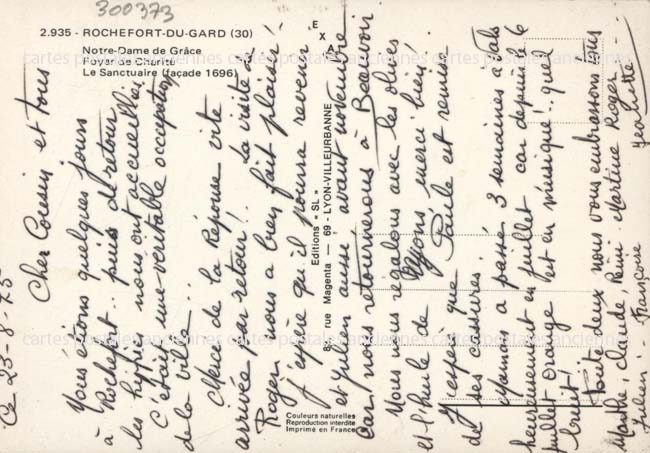 300373
2.935 - ROCHEFORT-DU-GARD (30)
Notre-Dame de Grâce
Foyer de Charité
Le Sanctuaire (façade 1696)
E
X
Editions « SL »
8, rue Magenta — 69 - LYON-VILLEURBANNE
Couleurs naturelles
Reproduction interdite
Imprimé en France
cartes postales anciennes
Ce 23-8-75
Cher Cousin et tous
Nous étions quelques jours
à Rochefort.. puis de retour
les hyppies nous ont accueillies
C'était une véritable occupation
de la ville..
Merci de la Réponse vite
arrivée par retour!. La visite à
Roger nous a bien fait plaisir
j'espère qu'il pourra revenir
et Julien aussi avant novembre
car nous retournerons à Beauvoir
Nous nous régalons avec les olives
et l'huile de Nyons merci bien!
J'espère que Paule est remise
de ses cassures.
Mamou a passé 3 semaines à Vals
heureusement en juillet car depuis le 6
juillet Orange est en musique! quel
bruit!
Toute deux nous vous embrassons tous
Marthe, Claude, Rémi, Martine Roger -
Julien - Françoise Henriette -